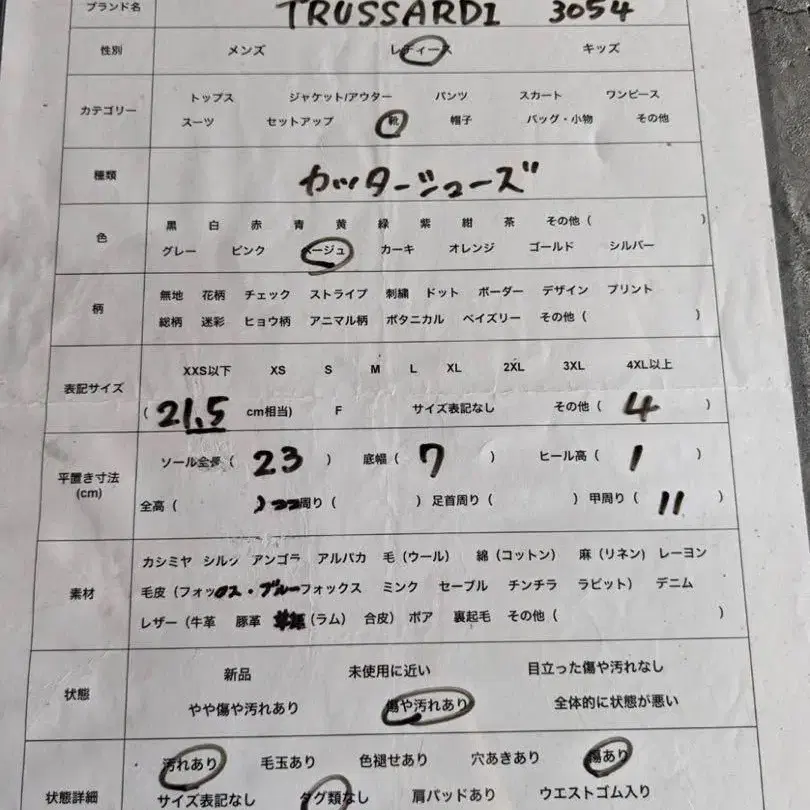 ブランド名 TRUSSARDI 3054
性別 メンズ レディース キッズ
カテゴリー
トップス ジャケット/アウター パンツ スカート ワンピース
スーツ セットアップ 靴 帽子 バッグ・小物 その他
種類 カッターシューズ
色
黒 白 赤 青 黄 緑 紫 紺 茶 その他( )
グレー ピンク ベージュ カーキ オレンジ ゴールド シルバー
柄
無地 花柄 チェック ストライプ 刺繍 ドット ボーダー デザイン プリント
総柄 迷彩 ヒョウ柄 アニマル柄 ボタニカル ペイズリー その他( )
表記サイズ
XXS以下 XS S M L XL 2XL 3XL 4XL以上
( 21.5 cm相当) F サイズ表記なし その他( 4 )
平置き寸法
(cm)
ソール全長( 23 ) 底幅( 7 ) ヒール高( 1 )
全高( ) 周り( ) 足首周り( ) 甲周り( 11 )
素材
カシミヤ シルク アンゴラ アルパカ 毛(ウール) 綿(コットン) 麻(リネン) レーヨン
毛皮(フォックス・ブルーフォックス ミンク セーブル チンチラ ラビット) デニム
レザー(牛革 豚革 (ラム) 合皮) ボア 裏起毛 その他( )
状態
新品 未使用に近い 目立った傷や汚れなし
やや傷や汚れあり 傷や汚れあり 全体的に状態が悪い
状態詳細
汚れあり 毛玉あり 色褪せあり 穴あきあり 傷あり
サイズ表記なし タグ類なし 肩パッドあり ウエストゴム入り